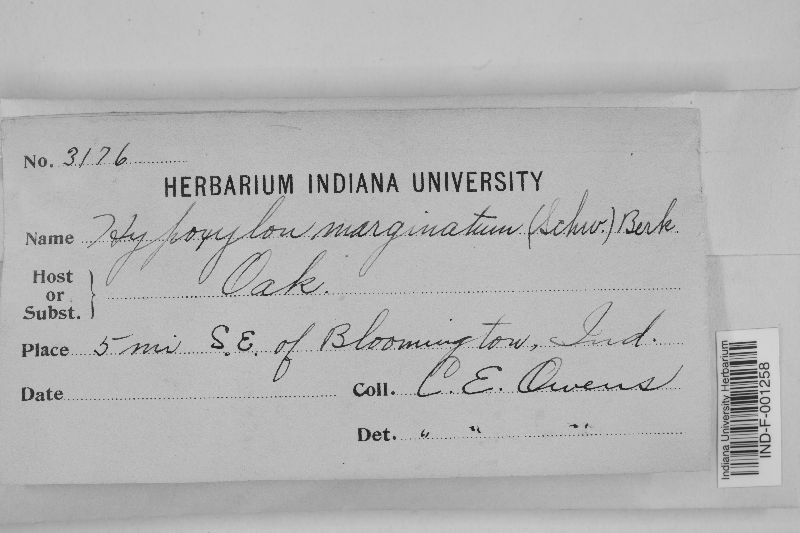 No. 3176
HERBARIUM INDIANA UNIVERSITY
Name Hypoxylon marginatum (Schw.) Berk
Host or Subst. } Oak.
Place 5 mi S.E. of Bloomington, Ind.
Date
Coll. C. E. Owens
Det. " " "
Indiana University Herbarium
IND-F-001258